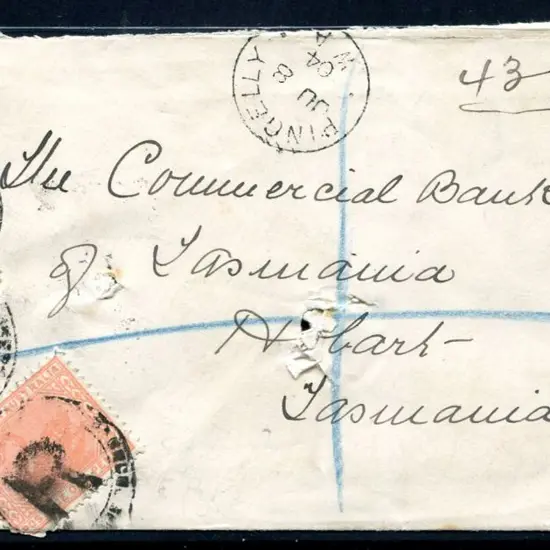 PINGELLY
JU 8
04
W.A
43
The Commercial Bank
of Tasmania
Hobart
Tasmania